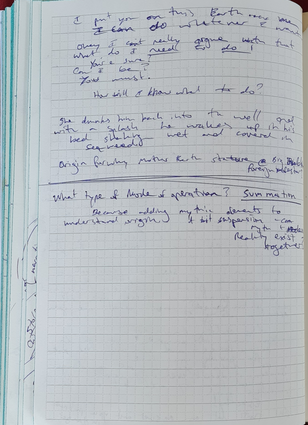 I put you on this Earth my son
I can do whatever I want
Okay I can't really argue with that
what do I need to do!
You're sure?
Can I be?
You must.
How will I know what to do?
She drunks him back into the well and
with a splash he wakes up in his
bed shaking wet and covered in
seaweed
Origin Mother Earth
What type of Mode of operation? Summation
Because adding mythic elements to
understand origin. A bit suspension - can
myth +
Reality exist
together